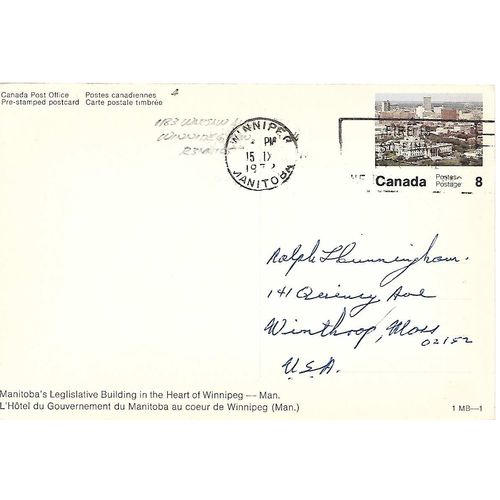 Canada Post Office Postes canadiennes
Pre-stamped postcard Carte postale timbrée
1183
WINNIPEG
WINNIPEG
PM
15 IX
MANITOBA
Canada Postes Postage 8
Ralph L Cunningham.
141 Quincy Ave
Winthrop, Mass
02152
U.S.A.
Manitoba's Leglislative Building in the Heart of Winnipeg — Man.
L'Hôtel du Gouvernement du Manitoba au coeur de Winnipeg (Man.)
1 MB—1